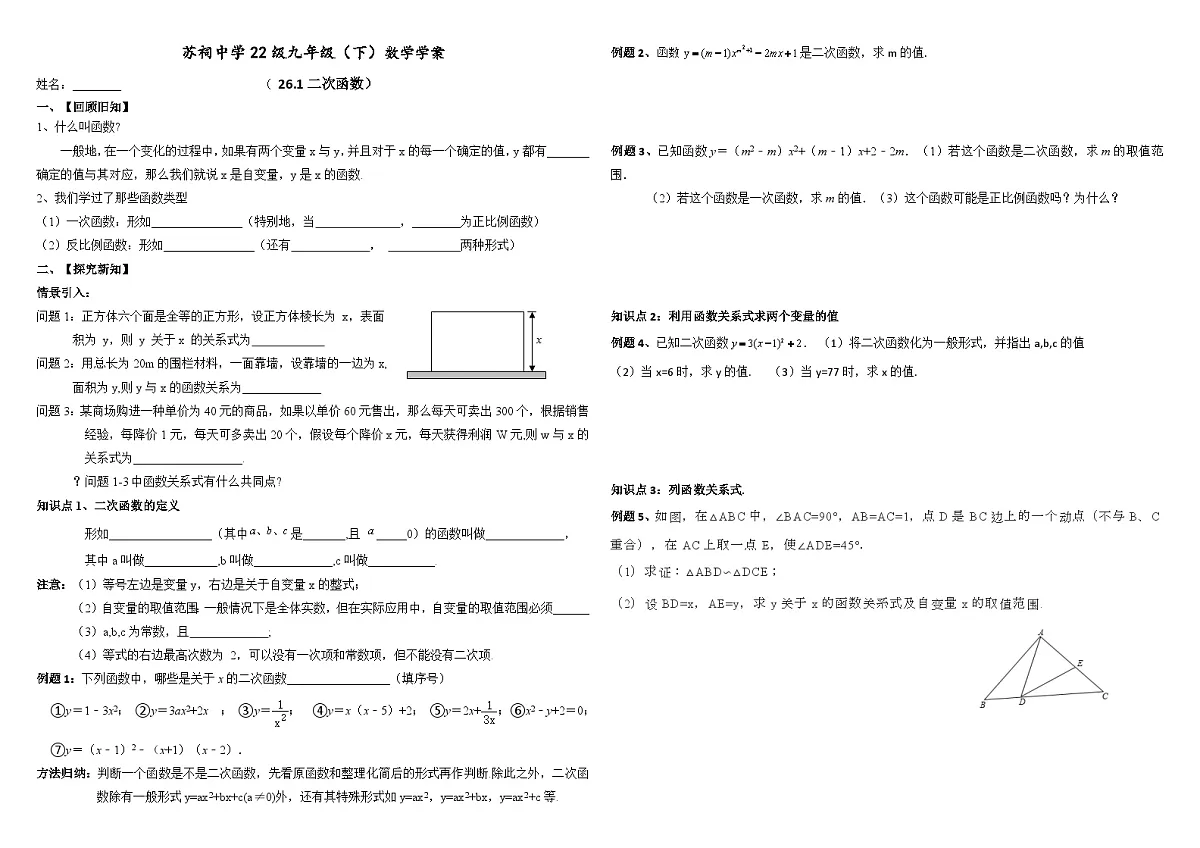 苏祠中学22级九年级（下）数学学案
姓名：________ （ 26.1二次函数）
一、【回顾旧知】
1、什么叫函数?
一般地,在一个变化的过程中,如果有两个变量x与y,并且对于x的每一个确定的值,y都有_______
确定的值与其对应，那么我们就说x是自变量，y是x的函数.
2、我们学过了那些函数类型
（1）一次函数：形如_______________（特别地，当______________，________为正比例函数）
（2）反比例函数：形如_______________（还有_____________， ____________两种形式）
二、【探究新知】
情景引入：
问题1：正方体六个面是全等的正方形，设正方体棱长为 x，表面
积为 y，则 y 关于x 的关系式为____________
x
问题2：用总长为20m的围栏材料，一面靠墙，设靠墙的一边为x,
面积为y,则y与x的函数关系为_____________
问题3：某商场购进一种单价为40元的商品，如果以单价60元售出，那么每天可卖出300个，根据销售
经验，每降价1元，每天可多卖出20个，假设每个降价x元，每天获得利润 W元,则w与x的
关系式为__________________.
？问题1-3中函数关系式有什么共同点?
知识点1、二次函数的定义
形如_________________（其中a、b、c是_______,且 a _____0）的函数叫做_____________，
其中a叫做____________,b叫做_____________,c叫做___________.
注意：（1）等号左边是变量y，右边是关于自变量x的整式；
（2）自变量的取值范围 一般情况下是全体实数，但在实际应用中，自变量的取值范围必须______
（3）a,b,c为常数，且_____________;
（4）等式的右边最高次数为 2，可以没有一次项和常数项，但不能没有二次项.
例题1：下列函数中，哪些是关于x的二次函数_________________（填序号）
①y＝1﹣3x²； ②y＝3ax²+2x ； ③y＝1/x²； ④y＝x（x﹣5）+2； ⑤y＝2x+1/3x；⑥x²﹣y+2＝0；
⑦y＝（x﹣1）²﹣（x+1）（x﹣2）．
方法归纳：判断一个函数是不是二次函数，先看原函数和整理化简后的形式再作判断.除此之外，二次函
数除有一般形式y=ax²+bx+c(a≠0)外，还有其特殊形式如y=ax²，y=ax²+bx，y=ax²+c等.
例题2、函数 y＝(m－1)x^(m²+1)－2mx＋1是二次函数，求m的值.
例题3、已知函数y＝（m²﹣m）x²+（m﹣1）x+2﹣2m．（1）若这个函数是二次函数，求m的取值范
围．
（2）若这个函数是一次函数，求m的值．（3）这个函数可能是正比例函数吗？为什么？
知识点2：利用函数关系式求两个变量的值
例题4、已知二次函数y＝3(x－1)²＋2． （1）将二次函数化为一般形式，并指出a,b,c的值
（2）当x=6时，求y的值. （3）当y=77时，求x的值.
知识点3：列函数关系式.
例题5、如图，在△ABC中，∠BAC=90°，AB=AC=1，点D是BC边上的一个动点（不与B、C
重合），在AC上取一点E，使∠ADE=45°．
（1）求证：△ABD∽△DCE；
（2）设BD=x，AE=y，求y关于x的函数关系式及自变量x的取值范围.
A
E
B
D
C